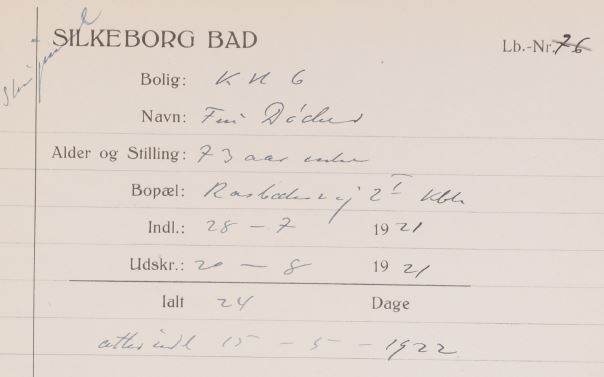 SILKEBORG BAD
Lb.-Nr. 76
Bolig: K H 6
Navn: Fru Döcker
Alder og Stilling: 73 aar enke
Bopæl: 2 I Kbh
Indl.: 28 - 7 1921
Udskr.: 20 - 8 1921
Ialt 24 Dage
atter indl 15 - 5 - 1922